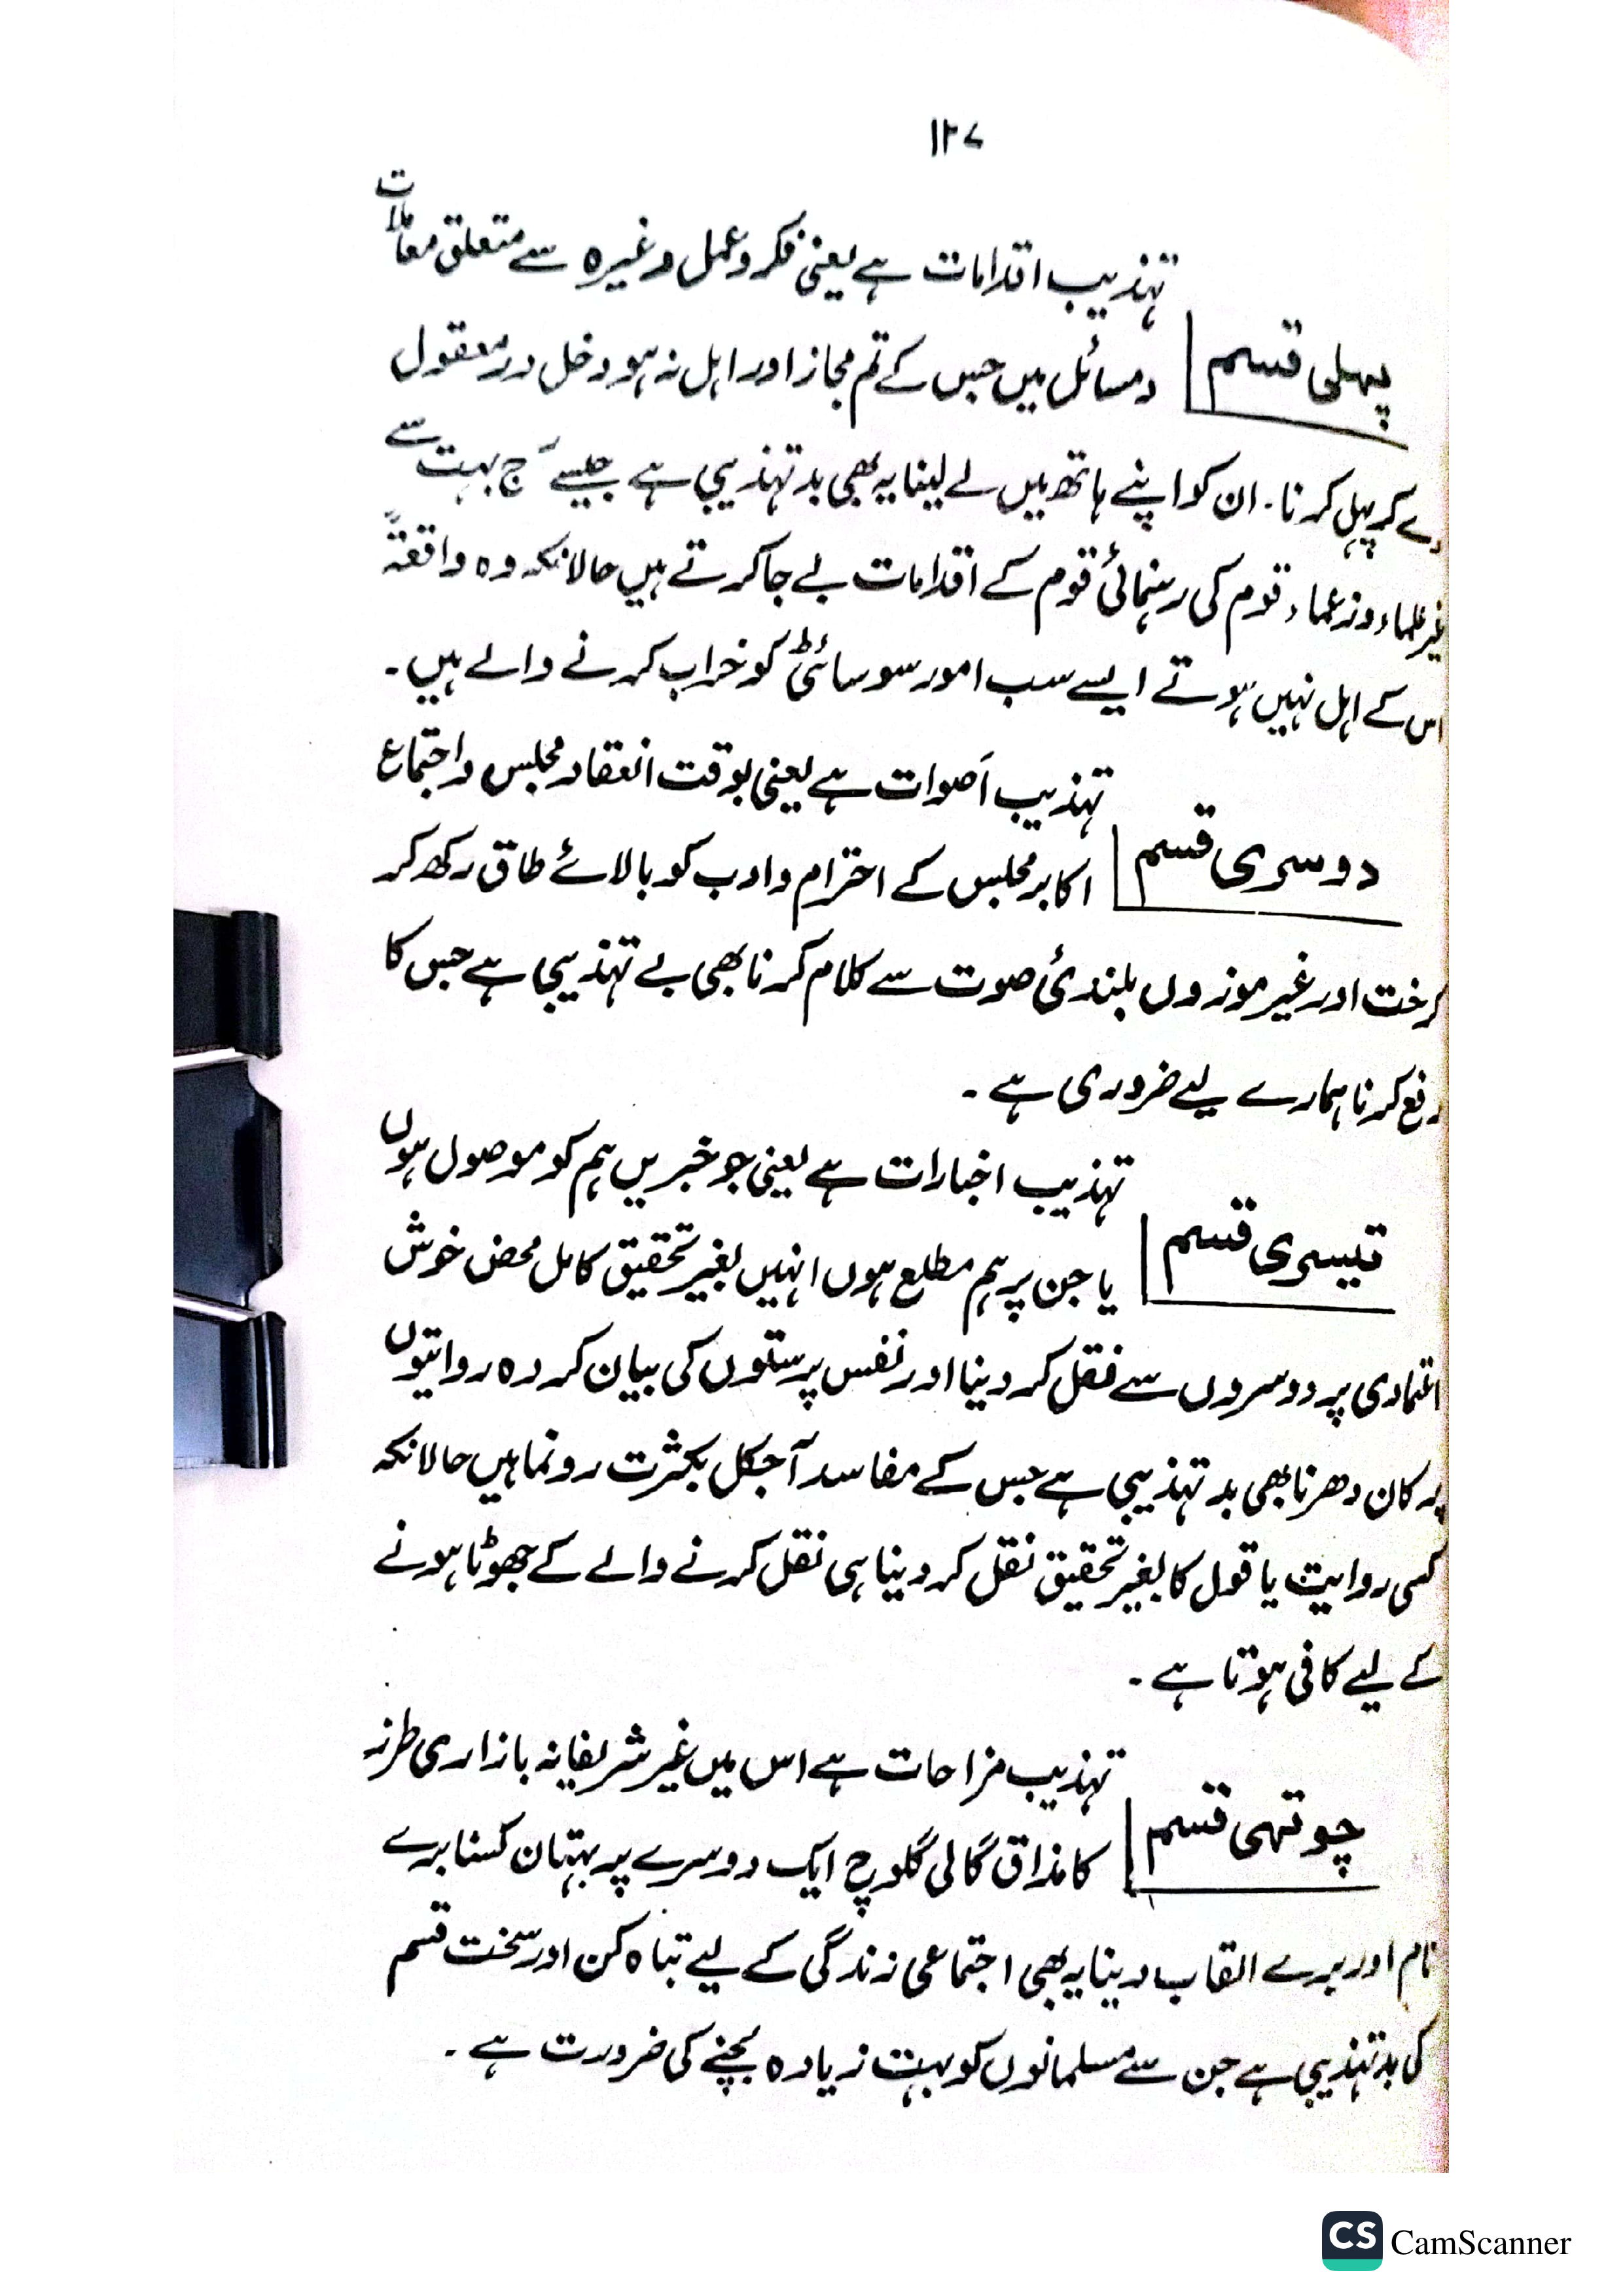 ۱۲۷
تہذیب اقدامات ہے یعنی فکر و عمل وغیرہ سے متعلق معاملات
پہلی قسم
و مسائل میں جس کے تم مجاز اور اہل نہ ہو دخل در معقول
دے کر پہل کرنا۔ ان کو اپنے ہاتھ میں لے لینا یہ بھی بدتہذیبی ہے جیسے آج بہت سے
غیر علماء و زعماء قوم کی رہنمائی قوم کے اقدامات بے جا کرتے ہیں حالانکہ وہ واقعۃً
اس کے اہل نہیں ہوتے ایسے سب امور سوسائٹی کو خراب کرنے والے ہیں۔
تہذیب اَصوات ہے یعنی بوقت انعقاد مجلس و اجتماع
دوسری قسم
اکابر مجلس کے احترام و ادب کو بالائے طاق رکھ کر
کرخت اور غیر موزوں بلندئ صوت سے کلام کرنا بھی بے تہذیبی ہے جس کا
رفع کرنا ہمارے لیے ضروری ہے۔
تہذیب اخبارات ہے یعنی جو خبریں ہم کو موصول ہوں
تیسری قسم
یا جن پر ہم مطلع ہوں انہیں بغیر تحقیق کامل محض خوش
اعتمادی پر دوسروں سے نقل کر دینا اور نفس پرستوں کی بیان کردہ روایتوں
پر کان دھرنا بھی بدتہذیبی ہے جس کے مفاسد آجکل بکثرت رونما ہیں حالانکہ
کسی روایت یا قول کا بغیر تحقیق نقل کر دینا ہی نقل کرنے والے کے جھوٹا ہونے
کے لیے کافی ہوتا ہے۔
تہذیب مزاحات ہے اس میں غیر شریفانہ بازاری طرز
چوتھی قسم
کا مذاق گالی گلوچ ایک دوسرے پر بہتان کسنا برے
نام اور برے القاب دینا یہ بھی اجتماعی زندگی کے لیے تباہ کن اور سخت قسم
کی بدتہذیبی ہے جن سے مسلمانوں کو بہت زیادہ بچنے کی ضرورت ہے۔
CS CamScanner